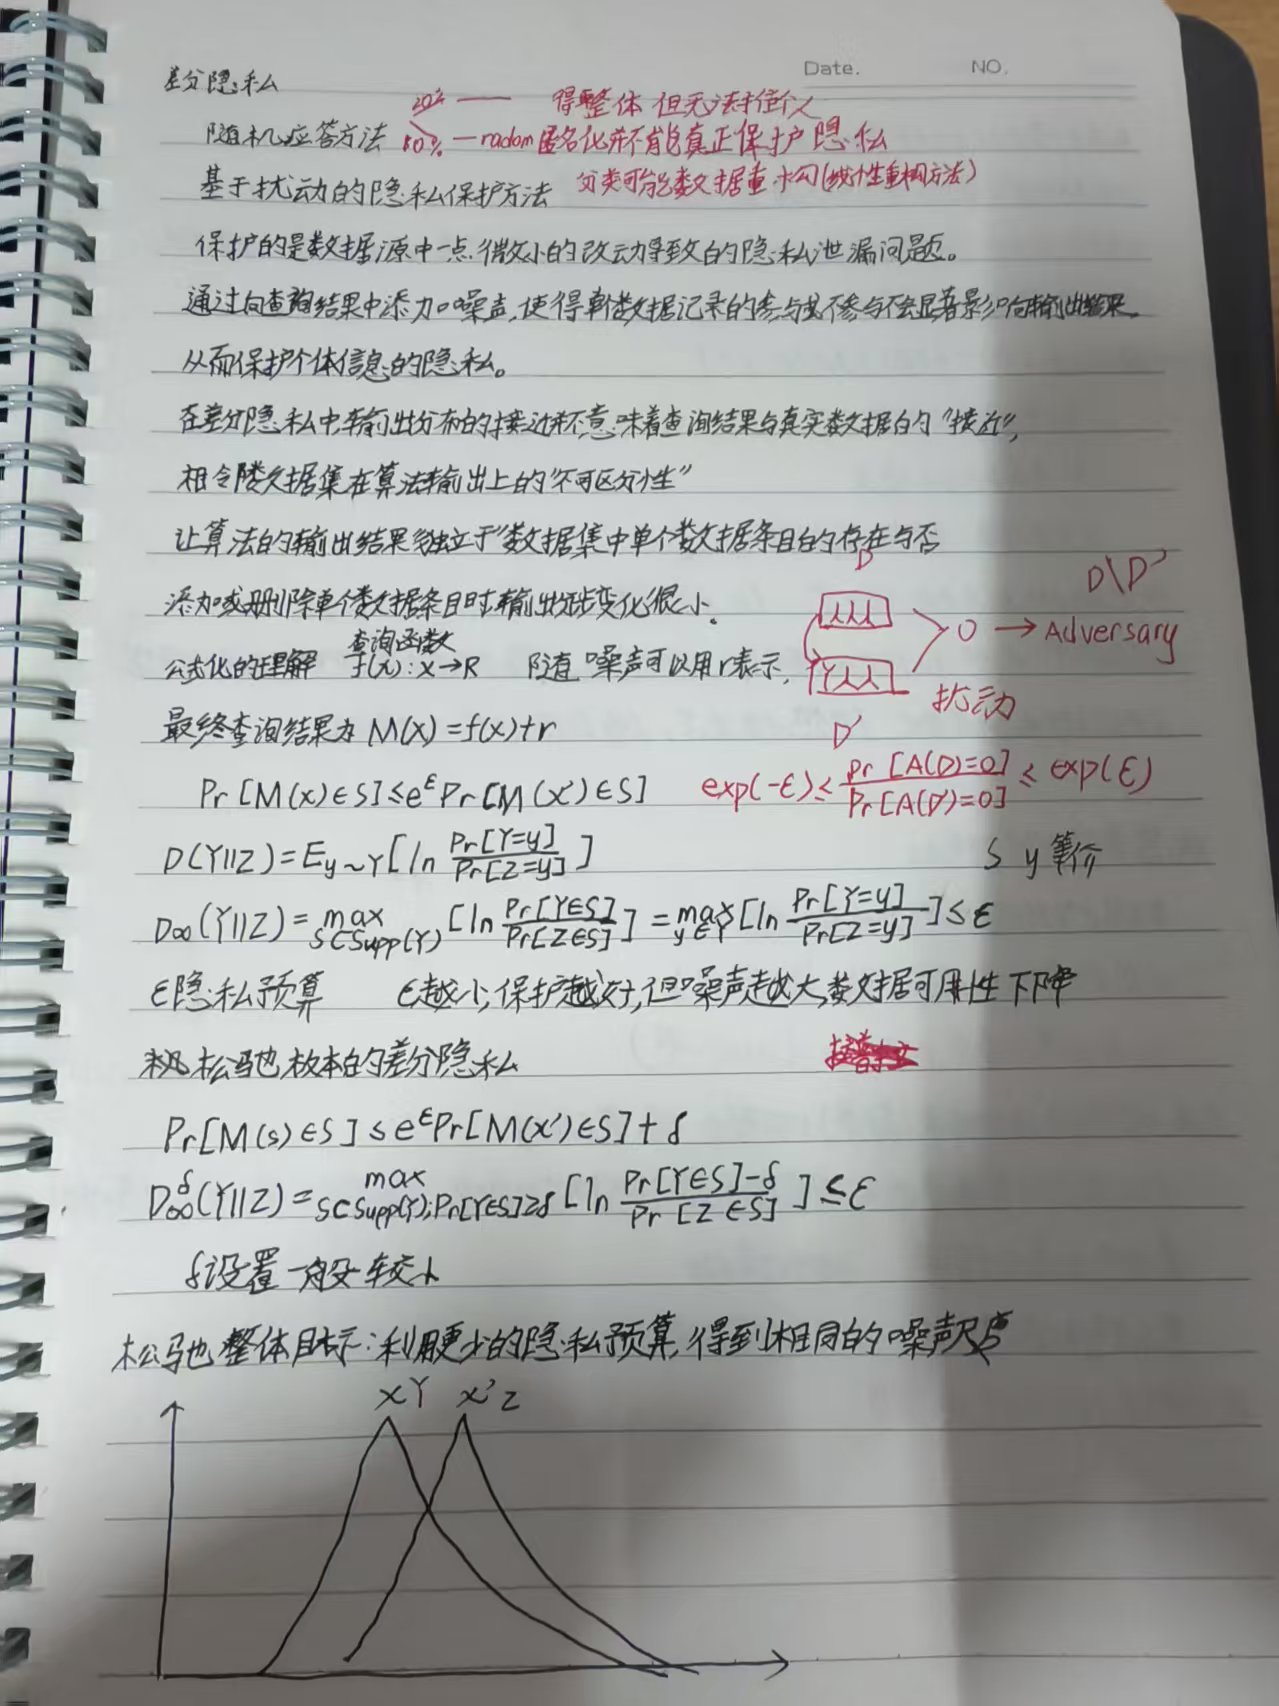 Date.    NO.
差分隐私
20% —— 得整体 但无法推个人
随机应答方法 80% — radom 匿名化并不能真正保护隐私
基于扰动的隐私保护方法 分类可能 数据重构(线性重构方法)
保护的是数据源中一点微小的改动导致的隐私泄漏问题。
通过向查询结果中添加噪声,使得单数据记录的参与或不参与不会显著影响输出结果。
从而保护个体信息的隐私。
在差分隐私中输出分布的接近并不意味着查询结果与真实数据的"接近",
相邻数据集在算法输出上的"不可区分性"
让算法的输出结果"独立于"数据集中单个数据条目的存在与否
D
D\D'
添加或删除单个数据条目时输出 变化很小。
O → Adversary
查询函数
公式化的理解 f(x): x→R 随 噪声可以用r表示,
扰动
最终查询结果为 M(x)=f(x)+r
D'
Pr[M(x)∈S]≤e^ε Pr[M(x')∈S] exp(-ε)≤ Pr[A(D)=O] / Pr[A(D')=O] ≤ exp(ε)
D(Y||Z)=E y~Y [ln Pr[Y=y] / Pr[Z=y]] S y 等价
D∞(Y||Z)= max S⊂Supp(Y) [ln Pr[Y∈S] / Pr[Z∈S]] = max y∈Y [ln Pr[Y=y] / Pr[Z=y]] ≤ ε
ε隐私预算 ε越小,保护越好,但噪声越大,数据可用性下降
松驰版本的差分隐私
Pr[M(s)∈S]≤e^ε Pr[M(x')∈S]+δ
D∞^δ(Y||Z)= max S⊂Supp(Y);Pr[Y∈S]≥δ [ln Pr[Y∈S]-δ / Pr[Z∈S]] ≤ε
δ设置一般较小
松驰 整体目标:利用更少的隐私预算,得到相同的噪声尺度
x Y x' Z